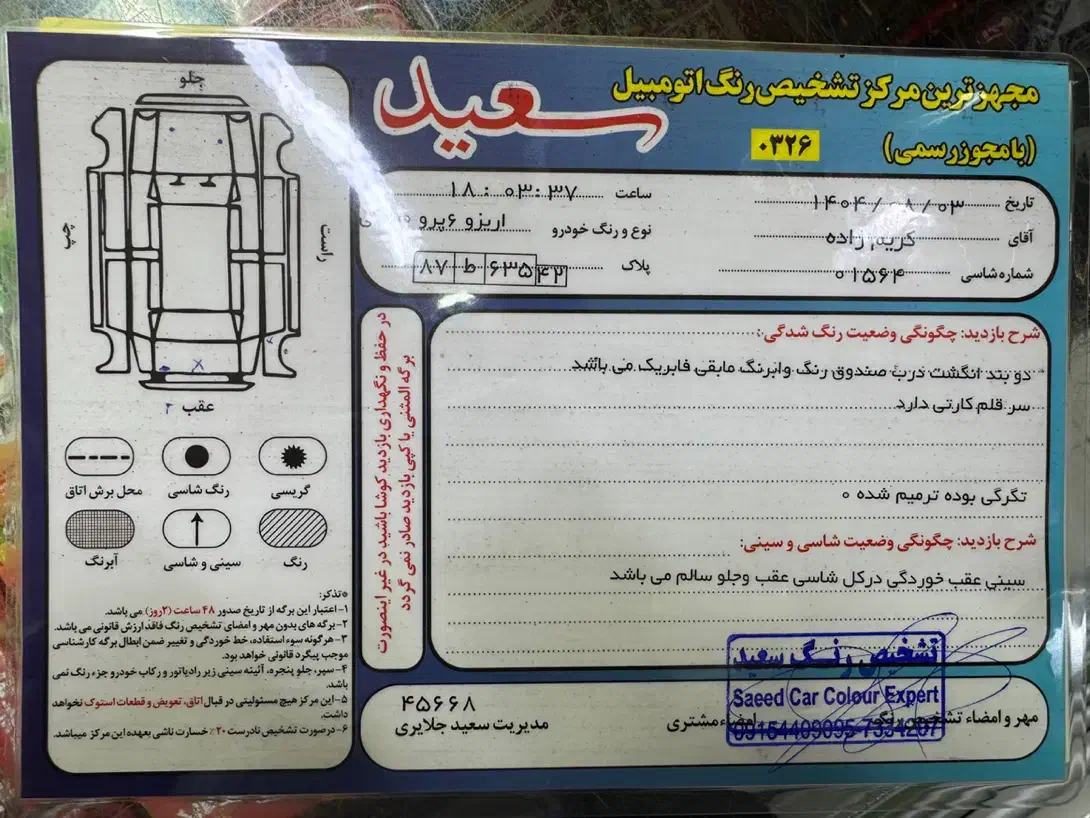 مجهزترین مرکز تشخیص رنگ اتومبیل
سعید
(با مجوز رسمی)
۰۳۲۶
تاریخ ۱۴۰۴/۰۸/۰۳
ساعت ۱۸:۰۳:۳۷
آقای کریم زاده
نوع و رنگ خودرو اریزو ۶پرو
شماره شاسی ۰۱۵۶۴
پلاک ۸۷ ط ۶۳۵ ۴۲
شرح بازدید: چگونگی وضعیت رنگ شدگی:
دو بند انگشت درب صندوق رنگ وابرنگ مابقی فابریک می باشد
سر قلم کارتی دارد
تگرگی بوده ترمیم شده ۰
شرح بازدید: چگونگی وضعیت شاسی و سینی:
سینی عقب خوردگی درکل شاسی عقب وجلو سالم می باشد
در حفظ و نگهداری بازدید کوشا باشید در غیر اینصورت
برگه المثنی یا کپی بازدید صادر نمی گردد
جلو
راست
چپ
عقب
گریسی
رنگ شاسی
محل برش اتاق
رنگ
سینی و شاسی
آبرنگ
*تذکر:
۱- اعتبار این برگه از تاریخ صدور ۴۸ ساعت (۲روز) می باشد.
۲- برگه های بدون مهر و امضای تشخیص رنگ فاقد ارزش قانونی می باشد.
۳- هرگونه سوء استفاده، خط خوردگی و تغییر ضمن ابطال برگه کارشناسی
موجب پیگرد قانونی خواهد بود.
۴- سپر، جلو پنجره، آئینه سینی زیر رادیاتور و رکاب خودرو جزء رنگ نمی
باشد.
۵- این مرکز هیچ مسئولیتی در قبال اتاق، تعویض و قطعات استوک نخواهد
داشت.
۶- درصورت تشخیص نادرست ۲۰٪ خسارت ناشی بعهده این مرکز میباشد.
مهر و امضاء تشخیص رنگ
امضاء مشتری
۴۵۶۶۸
مدیریت سعید جلایری
تشخیص رنگ سعید
Saeed Car Colour Expert